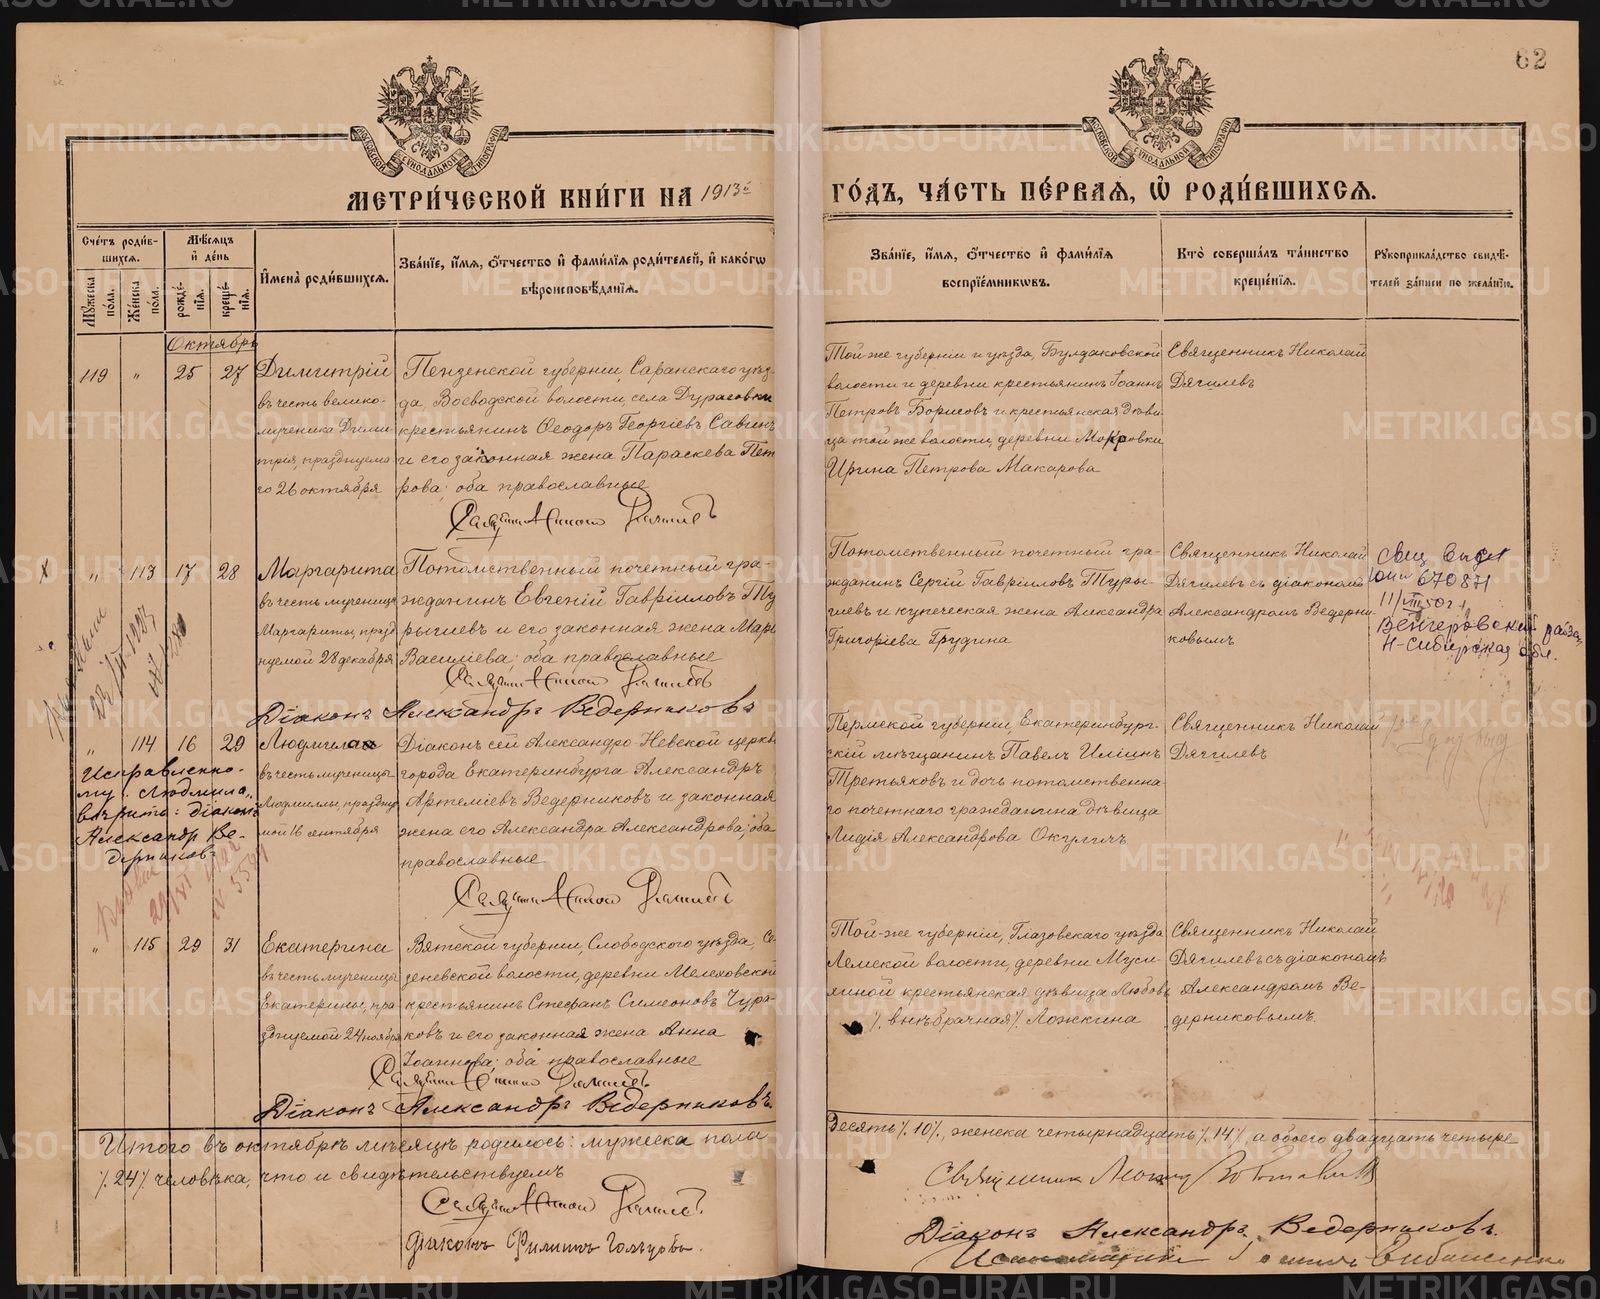 62
МЕТРИ́ЧЕСКОЙ КНИ́ГИ НА 1913й ГО́ДЪ, ЧА́СТЬ ПЕ́РВАЯ, Ѡ҆ РОДИ́ВШИХСЯ.
Сче́тъ роди́в-
шихся.
Мѣ́сяцъ
и҆ де́нь
Мꙋ́жеска по́ла.
Же́нска по́ла.
рожде́-нїя.
креще́-нїя.
И҆мена̀ роди́вшихся.
Зва́нїе, и҆́мя, ѻ҆́тчество и҆ фами́лїя роди́телей, и҆ како́гѡ
вѣроисповѣ́данїя.
Зва́нїе, и҆́мя, ѻ҆́тчество и҆ фами́лїя
воспрїе́мникѡвъ.
Кто̀ соверша́лъ та́инство
креще́нїя.
Рꙋкоприкла́дство свидѣ́-
телей за́писи по жела́нїю.
Октябрь
119 " 25 27
Димитрій
въ честь велико-
мученика Дими
трія, празднуема
го 26 октября
Пензенской губерніи, Саранскаго уѣз-
да, Воеводской волости, села Дурасовки
крестьянинъ Ѳеодоръ Георгіевъ Савинъ
и его законная жена Параскева Пет
рова; оба православные
Той-же губерніи и уѣзда, Булдаковской
волости и деревни крестьянинъ Іоаннъ
Петровъ Борисовъ и крестьянская дѣви
ца той же волости, деревни Мокровки
Ирина Петрова Макарова
Священникъ Николай
Дягилевъ
" 113 17 28
Маргарита
въ честь мученицы
Маргариты, празд
нуемой 28 декабря
Потомственный почетный гра-
жданинъ Евгеній Гавріиловъ Ту
рыгиевъ и его законная жена Марія
Василіева; оба православные
Діаконъ Александръ Ведерниковъ
Потомственный почетный гра-
жданинъ Сергій Гавріиловъ Туры-
гиевъ и купеческая жена Александра
Григоріева Грудина
Священникъ Николай
Дягилевъ съ діакономъ
Александромъ Ведерни-
ковымъ
670871
Венгеровский райзаг
Н-Сибирская обл.
" 114 16 29
Людмила
въ честь мученицы
Людмилы, праздну
мой 16 сентября
Діаконъ сей Александро Невской церкви
города Екатеринбурга Александръ
Артеміевъ Ведерниковъ и законная
жена его Александра Александрова; оба
православные
Исправленно-
му: "Людмила"
вѣрить: діаконъ
Александръ Ве-
дерниковъ
Пермской губерніи, Екатеринбург-
скій мѣщанинъ Павелъ Иліинъ
Третьяковъ и дочь потомственна-
го почетнаго гражданина дѣвица
Лидія Александрова Окуличъ
Священникъ Николай
Дягилевъ
" 115 29 31
Екатерина
въ честь мученицы
Екатерины, пра
зднуемой 24 ноября
Вятской губерніи, Слободского уѣзда, Се-
зеневской волости, деревни Мелеховской
крестьянинъ Стефанъ Симеоновъ Чура-
ковъ и его законная жена Анна
Іоаннова; оба православные
Діаконъ Александръ Ведерниковъ.
Той-же губерніи, Глазовскаго уѣзда
Лемской волости, деревни Муси-
хиной крестьянская дѣвица Любовь
/. внѣбрачная /. Ложкина
Священникъ Николай
Дягилевъ съ діакономъ
Александромъ Ве-
дерниковымъ.
Итого въ октябрѣ мѣсяцѣ родилось: мужеска пола десять /.10/., женска четырнадцать /.14/., а обоего двадцать четыре
/.24/. человѣка, что и свидѣтельствуемъ
Діаконъ Филиппъ Голубевъ.
Священник
Діаконъ Александръ Ведерниковъ.
METRIKI.GASO-URAL.RU